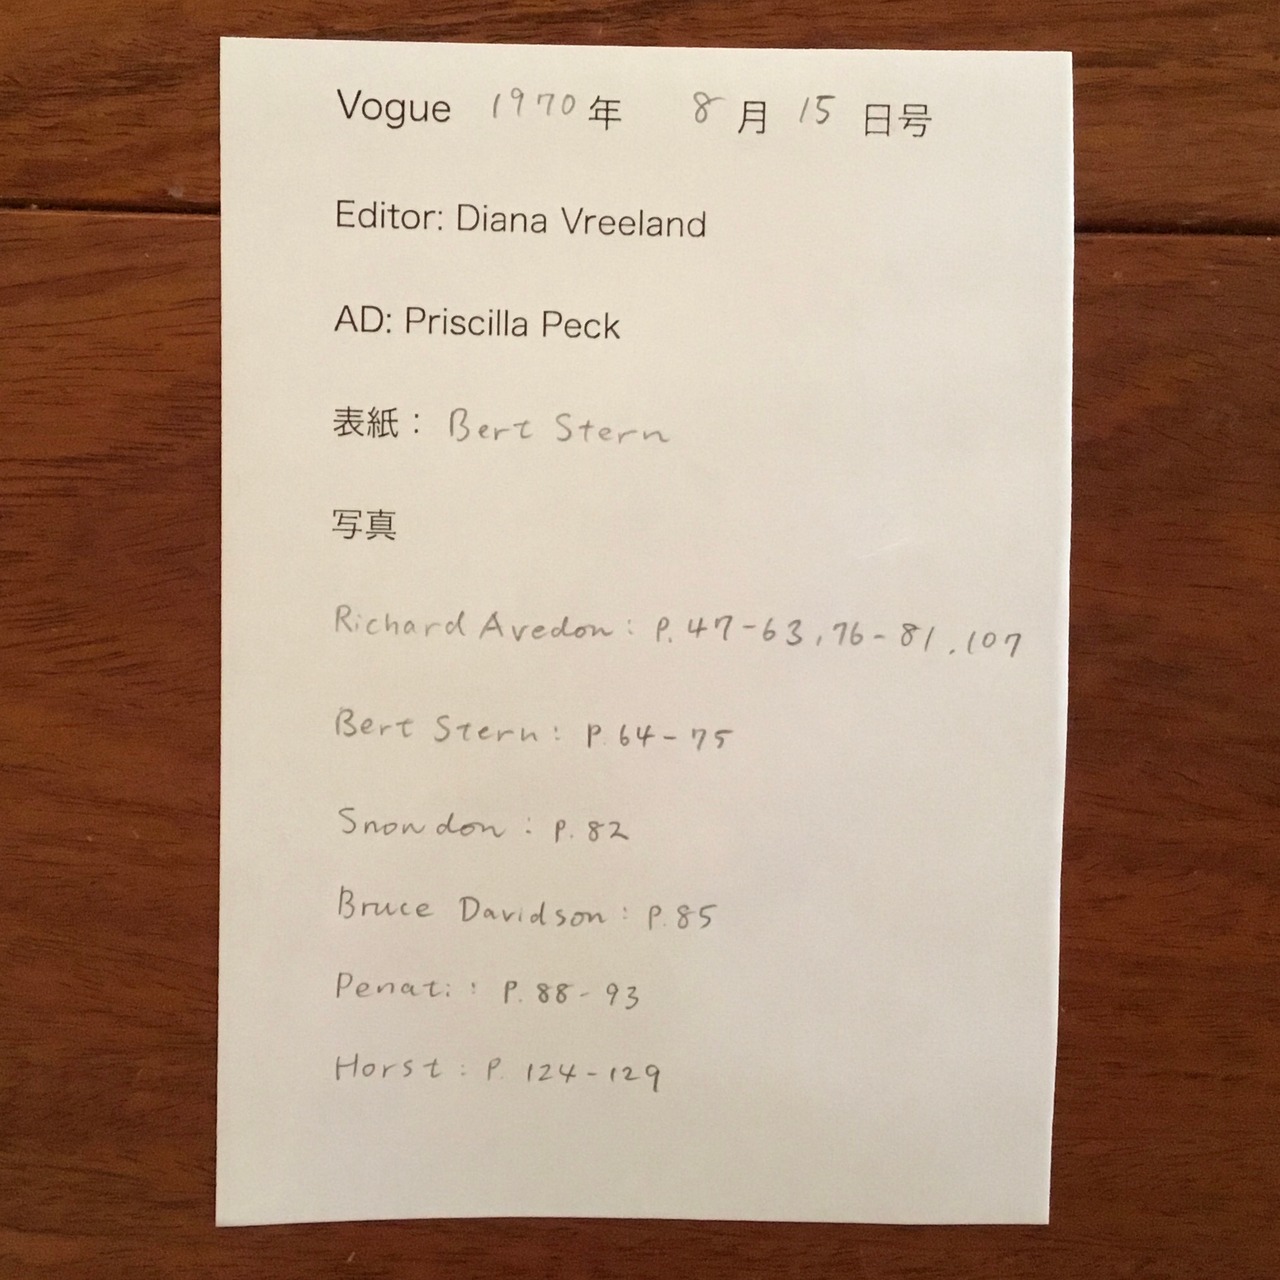 Vogue 1970年 8月15日号
Editor: Diana Vreeland
AD: Priscilla Peck
表紙： Bert Stern
写真
Richard Avedon: P.47-63,76-81,107
Bert Stern: P.64-75
Snowdon: P.82
Bruce Davidson: P.85
Penati: P.88-93
Horst: P.124-129